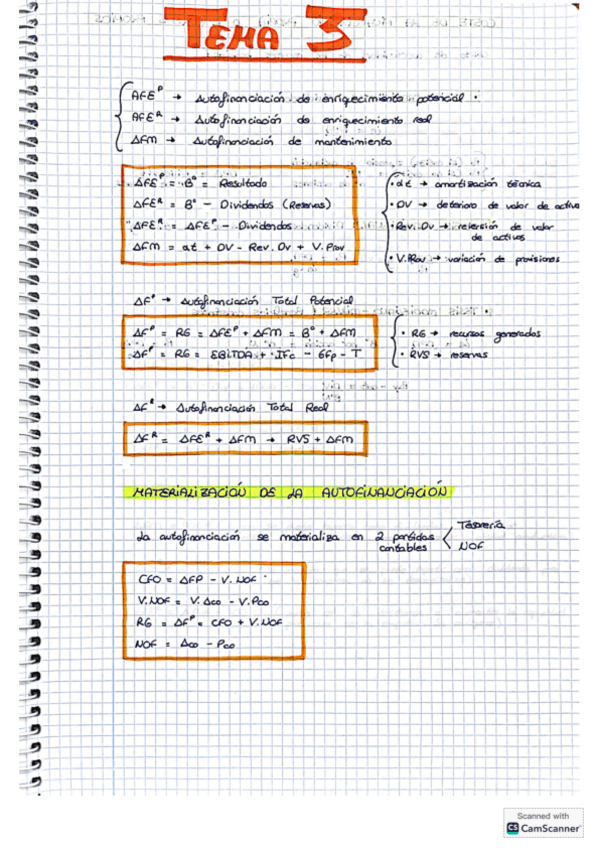 TEMA 3
AFEᴾ → Autofinanciación de enriquecimiento potencial.
AFEᴿ → Autofinanciación de enriquecimiento real
AFM → Autofinanciación de mantenimiento
AFEᴾ = Bº = Resultado
AFEᴿ = Bº - Dividendos (Reservas)
AFEᴿ = AFEᴾ - Dividendos
AFM = at + DV - Rev. Dv + V. Prov
• at → amortización técnica
• DV → deterioro de valor de activo
• Rev. Dv → reversión de valor
de activos
• V. Prov → variación de provisiones
AFᴾ → Autofinanciación Total Potencial
AFᴾ = RG = AFEᴾ + AFM = Bº + AFM
AFᴾ = RG = EBITDA + IFc - GFp - T
• RG → recursos generados
• RVS → reservas
AFᴿ → Autofinanciación Total Real
AFᴿ = AFEᴿ + AFM → RVS + AFM
MATERIALIZACIÓN DE LA AUTOFINANCIACIÓN
La autofinanciación se materializa en 2 partidas
contables
Tesorería
NOF
CFO = AFP - V. NOF
V. NOF = V. Aco - V. Pco
RG = AFᴾ = CFO + V. NOF
NOF = Aco - Pco
Scanned with
CS CamScanner